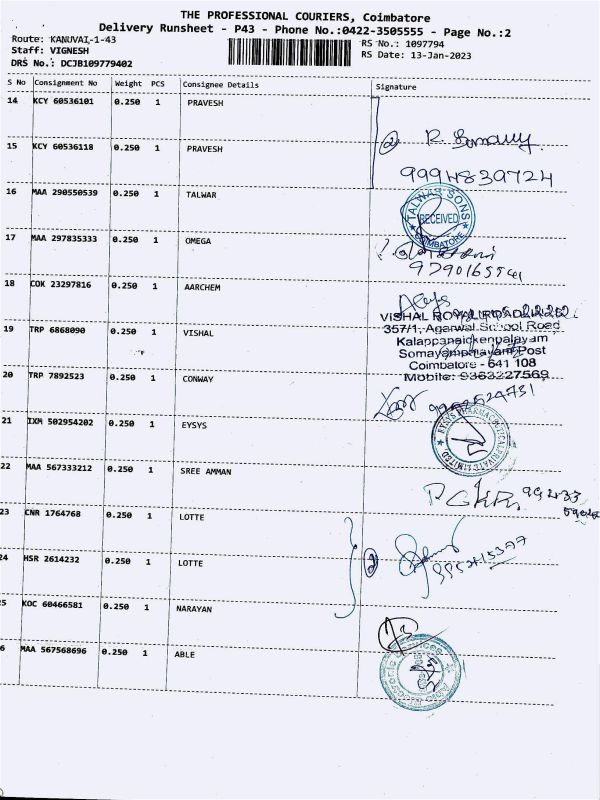 THE PROFESSIONAL COURIERS, Coimbatore
Delivery Runsheet - P43 - Phone No.:0422-3505555 - Page No.:2
Route: KANUVAI-1-43
RS No.: 1097794
Staff: VIGNESH
RS Date: 13-Jan-2023
DRS No.: DCJB109779402
S No Consignment No Weight PCS Consignee Details Signature
14 KCY 60536101 0.250 1 PRAVESH
15 KCY 60536118 0.250 1 PRAVESH
2
9994839724
16 MAA 290550539 0.250 1 TALWAR
TALWAR SONS RECEIVED COIMBATORE
17 MAA 297835333 0.250 1 OMEGA
18 COK 23297816 0.250 1 AARCHEM
19 TRP 6868090 0.250 1 VISHAL
VISHAL ROYAL
357/1, Agarwal School Road
Kalappanaickenpalayam
Somayampalayam Post
Coimbatore - 641 108
Mobile: 9363227569
20 TRP 7892523 0.250 1 CONWAY
21 IXM 502954202 0.250 1 EYSYS
EYSYS PHARMACEUTICAL PRIVATE LIMITED
22 MAA 567333212 0.250 1 SREE AMMAN
23 CNR 1764768 0.250 1 LOTTE
24 HSR 2614232 0.250 1 LOTTE
2
5 KOC 60466581 0.250 1 NARAYAN
6 MAA 567568696 0.250 1 ABLE